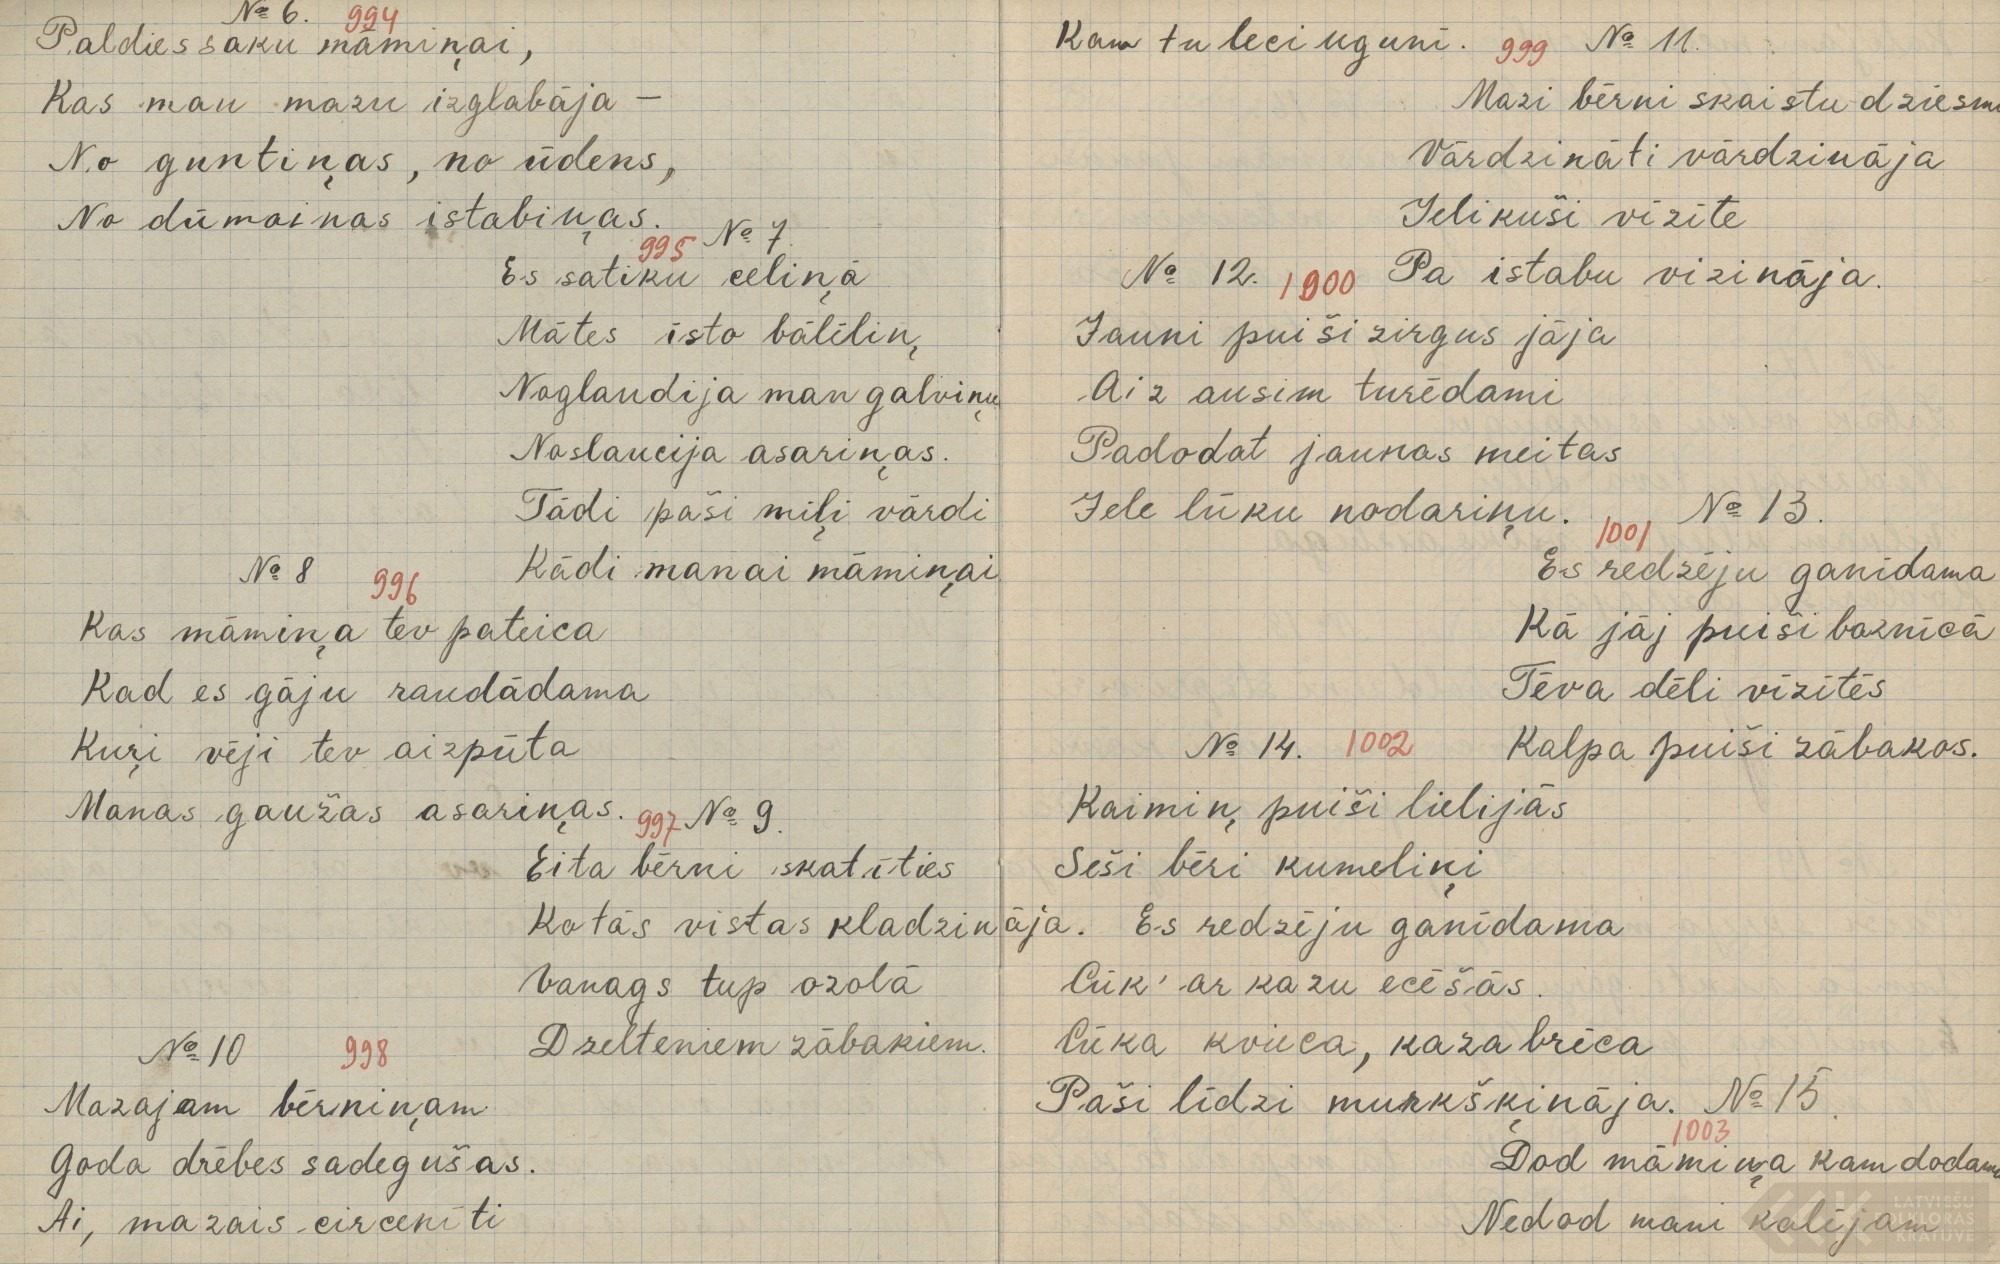 № 6. 994
Paldies saku māmiņai,
Kas man mazu izglabāja –
No guntiņas, no ūdens,
No dūmainas istabiņas.
995 № 7.
Es satiku celiņā
Mātes īsto bālēliņ,
Noglaudija man galviņu
Noslaucija asariņas.
Tādi paši miļi vārdi
Kādi manai māmiņai
№ 8 996
Kas māmiņa tev pateica
Kad es gāju raudādama
Kuŗi vēji tev aizpūta
Manas gaužas asariņas.
997 № 9.
Eita bērni skatīties
Ko tās vistas kladzināja.
Vanags tup ozolā
Dzelteniem zābakiem.
№ 10 998
Mazajam bērniņam
Goda drēbes sadegušas.
Ai, mazais circenīti
Kam tu leci ugunī.
999 № 11.
Mazi bērni skaistu dziesmu
Vārdzināti vārdzināja
Ielikuši vīzītē
Pa istabu vizināja.
№ 12. 1000
Jauni puiši zirgus jāja
Aiz ausim turēdami
Padodat jaunas meitas
Jele lūku nodariņu.
1001 № 13.
Es redzēju ganīdama
Kā jāj puiši baznīcā
Tēva dēli vīzītēs
Kalpa puiši zābakos.
№ 14. 1002
Kaimiņ puiši lielijās
Seši bēri kumeliņi
Es redzēju ganīdama
Cūk' ar kazu ecēšās.
Cūka kvieca, kaza brēca
Paši līdzi murkšķināja.
№ 15.
1003
Dod māmiņa kam dodama
Nedod mani kalējam
LATVIEŠU
FOLKLORAS
KRĀTUVE